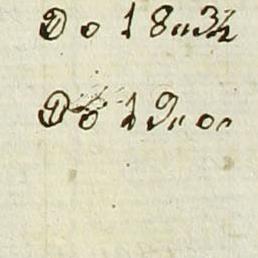 Do 1 8 " 3½
Do 1 9 " 0 "